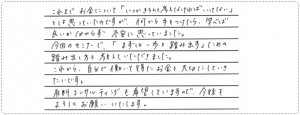 これまでお金について「いつかきちんと考えなければいけない」
とは思っていたのですが、何から手をつけたら、学べば
良いか分からず不安に思っていました。
今回のセミナーで、「まずは一歩を踏み出す」ための
踏み出し方を考えていただきました。
これから、自分で働いて得たお金を大切にしていき
たいです。
有料コンサルティングも希望していますので、今後も
よろしくお願いいたします。